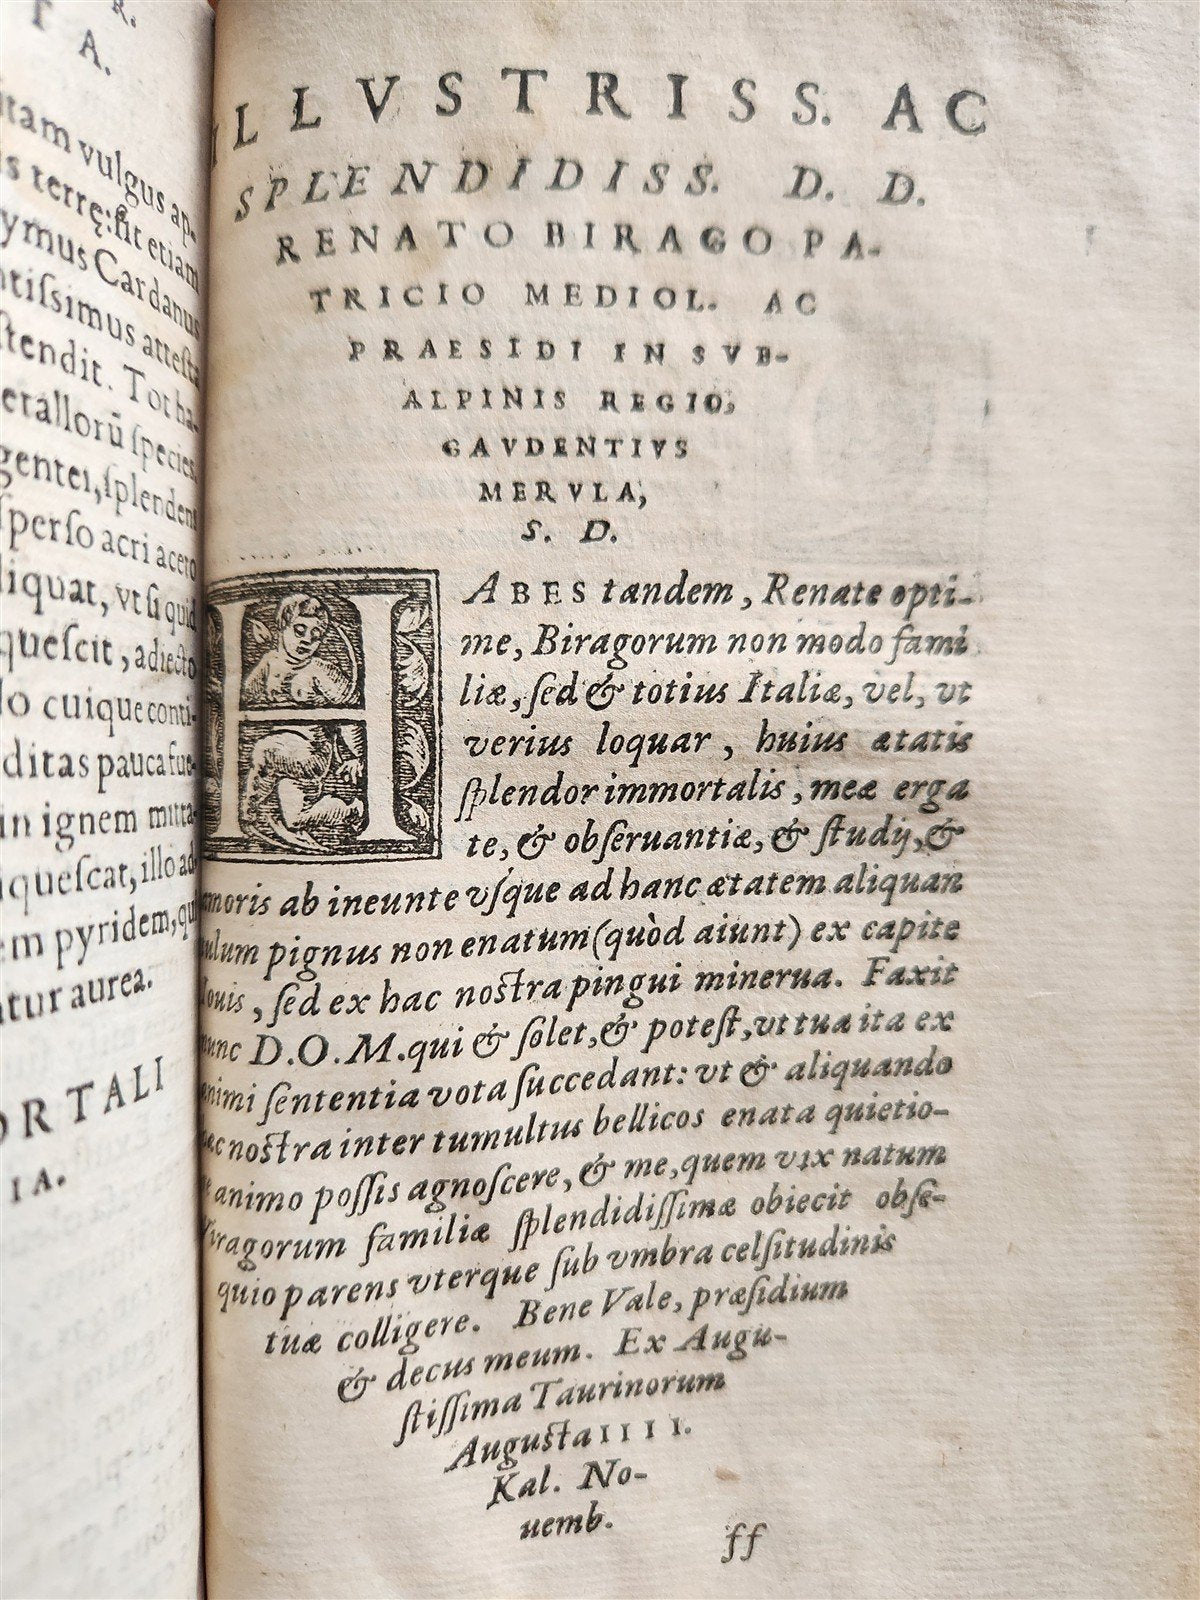 R.
T A.
itam vulgus ap-
is terrę: sit etiam
ymus Cardanus
ntiſsimus atteſta
ſtendit. Tot ha-
etallorū ſpecies
genteı, ſplendens
ſperſo acri aceto
liquat, vt ſi quid
queſcit, adiecto
lo cuique conti-
ditas pauca fue-
in ignem mitta-
iqueſcat, illo ad
em pyridem, qu
atur aurea.
ORTALI
IA.
ILLVSTRISS. AC
SPLENDIDISS. D. D.
RENATO BIRAGO PA-
TRICIO MEDIOL. AC
PRAESIDI IN SVB-
ALPINIS REGIO,
GAVDENTIVS
MERVLA,
S. D.
HABES tandem, Renate opti-
me, Biragorum non modo fami
liæ, ſed & totius Italiæ, vel, vt
verius loquar, huius ætatis
ſplendor immortalis, meæ erga
te, & obſeruantiæ, & ſtudij, &
amoris ab ineunte vſque ad hanc ætatem aliquan
tulum pignus non enatum (quòd aiunt) ex capite
Iouis, ſed ex hac noſtra pingui minerua. Faxit
nunc D.O.M. qui & ſolet, & poteſt, vt tua ita ex
animi ſententia vota ſuccedant: vt & aliquando
hæc noſtra inter tumultus bellicos enata quietio-
re animo poſſis agnoſcere, & me, quem vix natum
Biragorum familiæ ſplendidiſſimæ obiecit obſe-
quio parens vterque ſub vmbra celſitudinis
tuæ colligere. Bene Vale, præſidium
& decus meum. Ex Augu-
ſtiſſima Taurinorum
Auguſta IIII.
Kal. No-
uemb.
ff